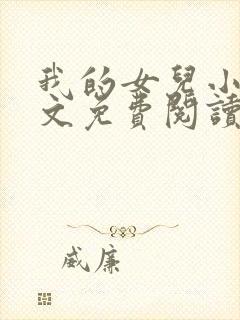 我的女兒小
文免費閱讀
威廉